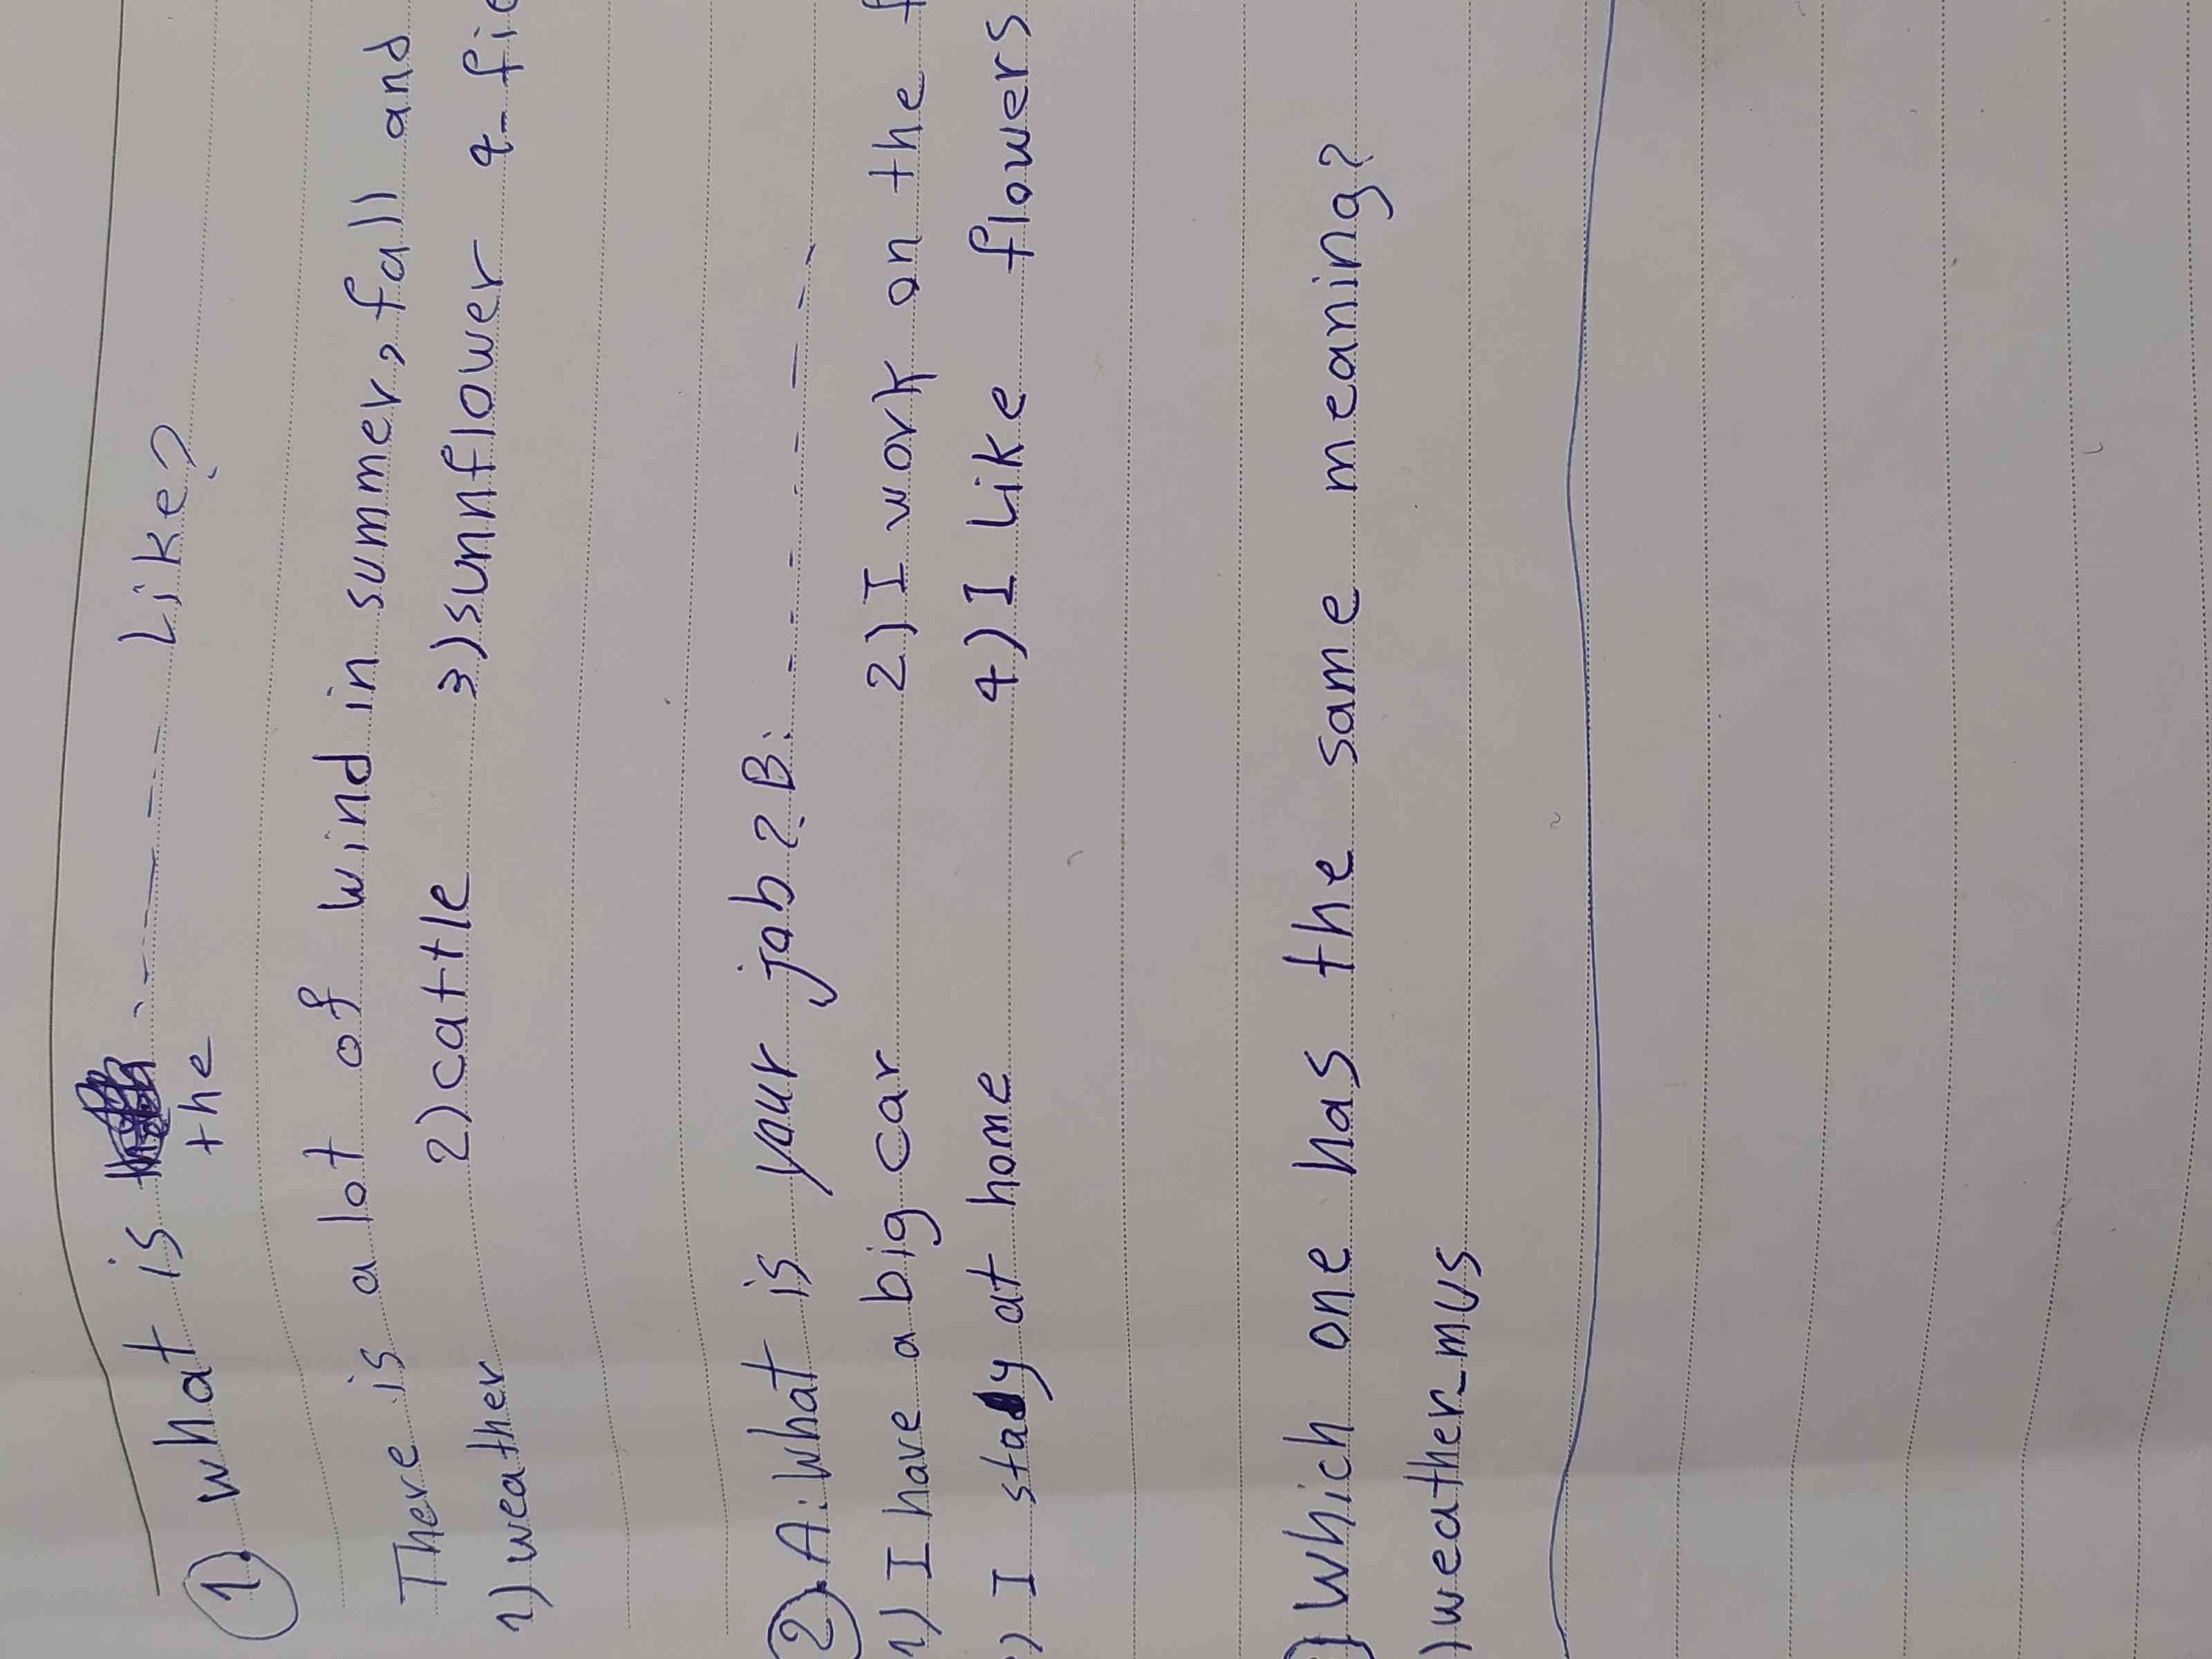 1) what is the ------- Like?
There is a lot of wind in summer, fall and
1) weather 2) cattle 3) sunnflower 4-
2) A: what is your job? B: -------
1) I have a big car 2) I work on the
) I stady at home 4) I Like flowers
) which one has the same meaning?
) weather_mus